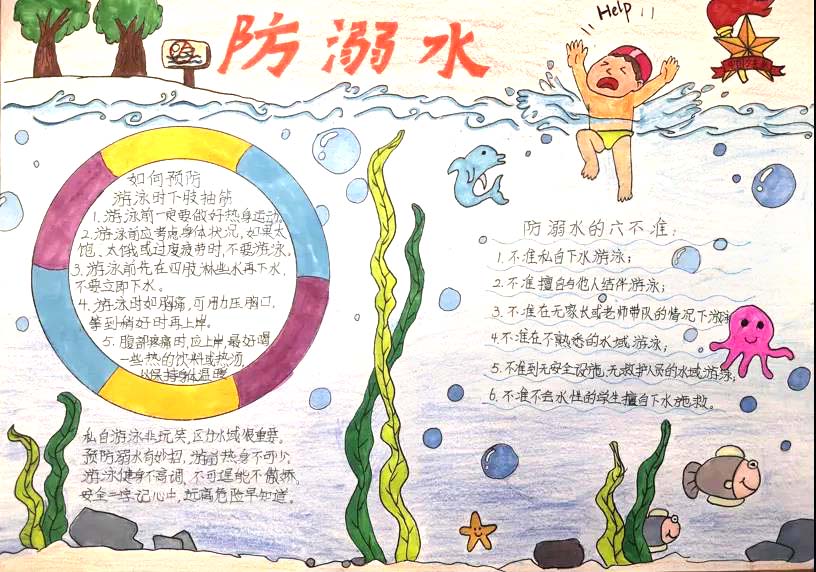 防溺水
Help!!
如何预防
游泳时下肢抽筋
1. 游泳前一定要做好热身运动
2. 游泳前应考虑身体状况，如果太
饱、太饿或过度疲劳时，不要游泳。
3. 游泳前先在四肢淋些水再下水，
不要立即下水。
4. 游泳时如胸痛，可用力压胸口，
等到稍好时再上岸。
5. 腹部疼痛时，应上岸，最好喝
一些热的饮料或热汤，
以保持身体温暖
防溺水的六不准：
1. 不准私自下水游泳；
2. 不准擅自与他人结伴游泳；
3. 不准在无家长或老师带队的情况下游泳
4. 不准在不熟悉的水域游泳；
5. 不准到无安全设施，无救护人员的水域游泳；
6. 不准不会水性的学生擅自下水施救。
私自游泳非玩笑，区分水域很重要。
预防溺水有妙招，游前热身不可少
游泳健身不高调，不可逞能不傲娇。
安全二字记心中，远离危险早知道。